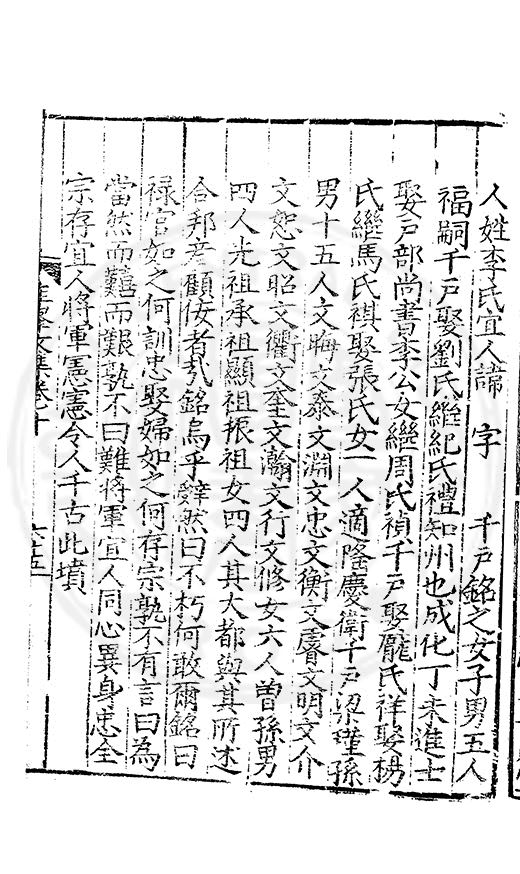 人姓李氏宜人諱　字　　千戶銘之女子男五人
福嗣千戶娶劉氏繼紀氏禮知州也成化丁未進士
娶戶部尚書李公女繼周氏禎千戶娶龐氏祥娶楊
氏繼馬氏祺娶張氏女一人適隆慶衛千戶梁瑾孫
男十五人文晦文泰文淵文忠文衡文睿文明文介
文恕文昭文衢文奎文瀚文行文修女六人曾孫男
四人光祖承祖顯祖振祖女四人其大都與其所述
合邦彥顧佞者㢤銘烏乎辭然曰不朽何敢爾銘曰
祿官如之何訓忠娶婦如之何存宗孰不有言曰為
當然而囏而艱孰不曰難將軍宜人同心異身忠全
宗存宜人將軍憲憲令人千古此墳
文集卷十　六十五